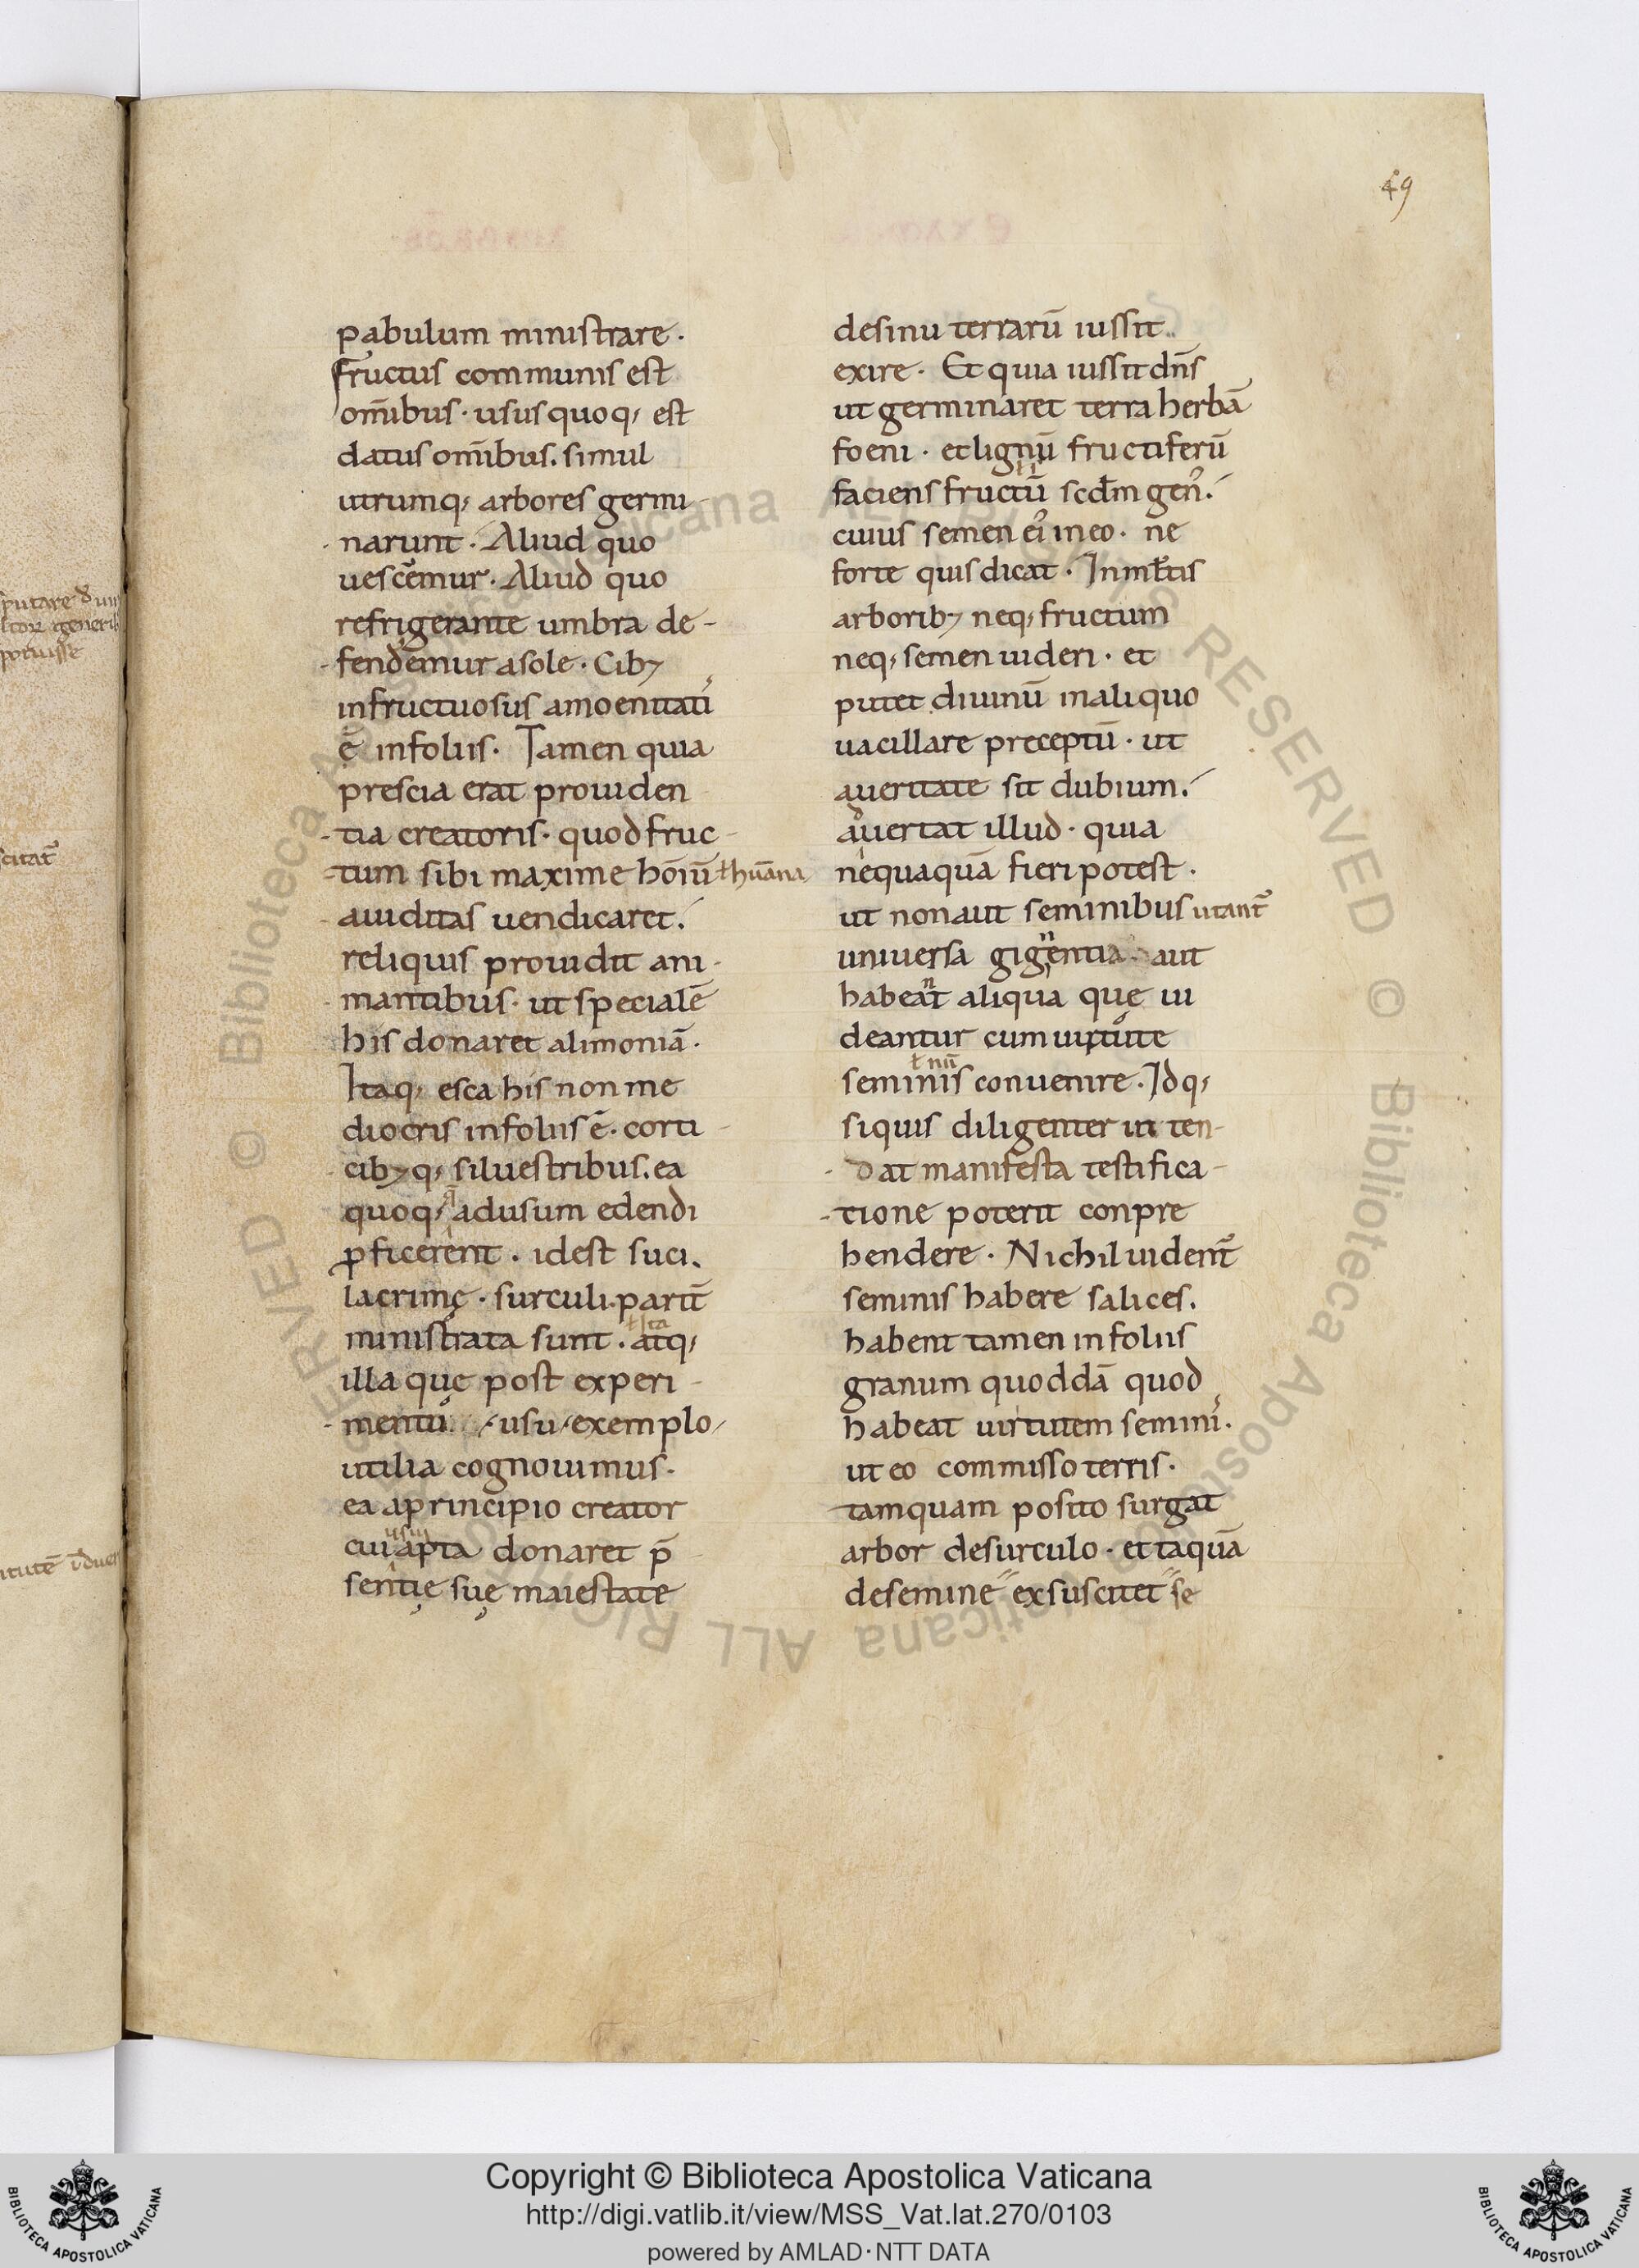 49
pabulum ministrare·
fructus communis est
om̄ibus· usus quoq; est
datus om̄ibus. simul
utrumq; arbores germi-
narunt· Aliud quo
uescemur· Aliud quo
refrigerante umbra de-
fendemur asole· Cibus
infructuosus amoenitati
ē infoliis· Tamen quia
prescia erat prouiden
tia creatoris· quod fruc-
tum sibi maxime hōiū ł huāna
auiditas uendicaret.
reliquis prouidit ani-
mantibus· ut specialē
his donaret alimoniā·
Itaq; esca his non me
diocris infoliis ē· corti-
cibusq; siluestribus. ea
quoq; adusum edendi
ꝓficerent· idest suci.
lacrimę· surculi· parit̄
ministrata sunt· atq; ł Ita
illa quę post experi-
mentū usu exemplo
utilia cognouimus·
ea aprincipio creator
cui apta donaret p̄ usui
sentię suę maiestate
desinu terrarū iussit
exire· Et quia iussit dn̄s
ut germinaret terra herbā
foeni· et lignū fructiferū
faciens fructū scd̄m gen᾿.
cuius semen ei᾿ ineo· ne
forte quis dicat· Inml̄tis
arborib; neq; fructum
neq; semen uideri· et
putet diuinū inaliquo
uacillare preceptū· ut
aueritate sit dubium.
aduertat illud· quia
nequaquā fieri potest·
ut non aut seminibus utant᷑
uniuersa gignentia aut
habeant aliqua quę ui
deantur cum uirtute
seminis conuenire· Idq; ł nū
siquis diligenter in ten-
dat manifesta testifica-
tione poterit conpre
hendere· Nichil uident᷑
seminis habere salices.
habent tamen infoliis
granum quoddā quod
habeat uirtutem semini·
ut eo commisso terris·
tamquam posito surgat
arbor desurculo· et taquā
desemine exsuscitet se
Copyright © Biblioteca Apostolica Vaticana
http://digi.vatlib.it/view/MSS_Vat.lat.270/0103
powered by AMLAD·NTT DATA
BIBLIOTECA APOSTOLICA VATICANA
BIBLIOTECA APOSTOLICA VATICANA